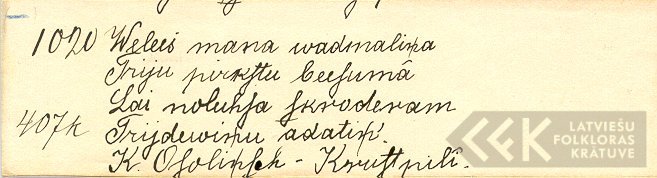 1020 Weleis mana wadmaliņa
Triju pirkstu beesumâ
Lai noluhsa skroderam
407k Trijdewiņu adatiņ.
K. Ohsoliņsch - Krustpilî.
LATVIEŠU
FOLKLORAS
KRĀTUVE